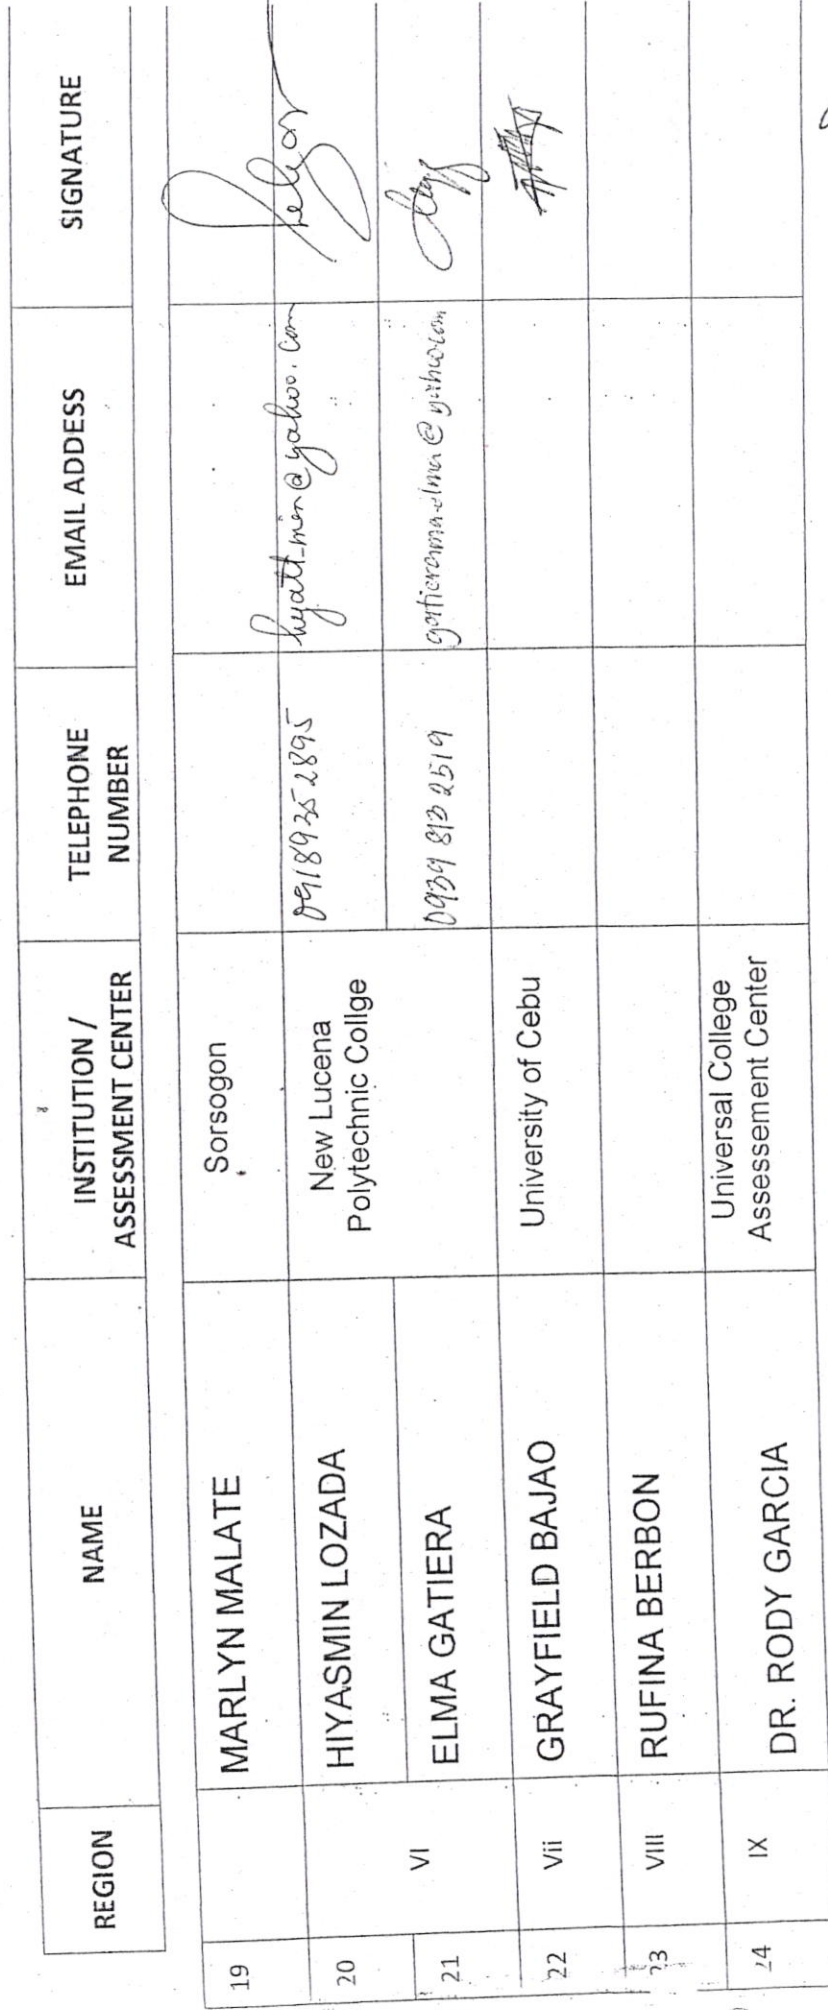 REGION NAME INSTITUTION / ASSESSMENT CENTER TELEPHONE NUMBER EMAIL ADDESS SIGNATURE
19 MARLYN MALATE Sorsogon
20 HIYASMIN LOZADA New Lucena 09189352895 hyatt_min@yahoo.com
VI Polytechnic Collge
21 ELMA GATIERA 0939 813 2519
22 Vii GRAYFIELD BAJAO University of Cebu
23 VIII RUFINA BERBON
24 IX DR. RODY GARCIA Universal College
Assessement Center